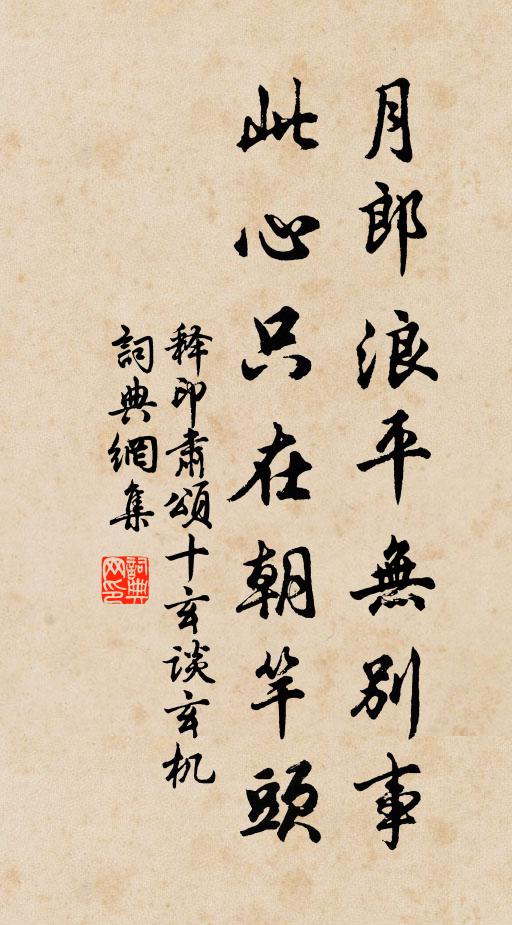 月郎浪平無別事
此心只在朝竿頭
释印肅頌十玄谈玄机
詞典網集
詞典
网印